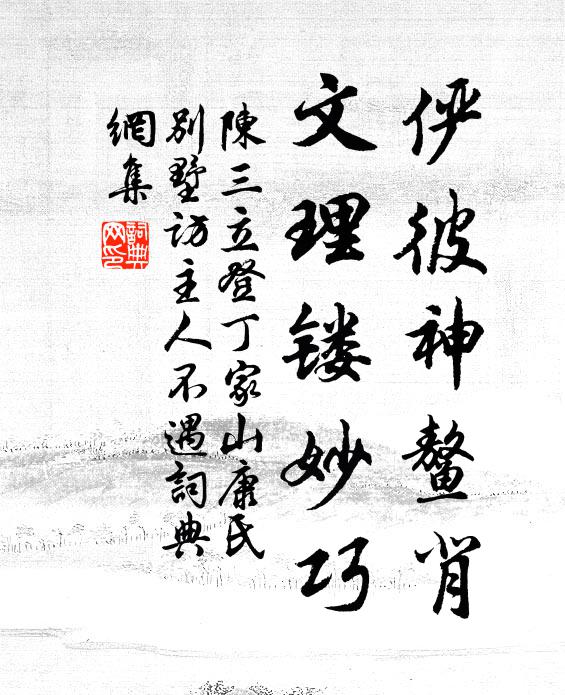 俨彼神鳌背
文理镂妙巧
陳三立登丁家山康氏
别墅访主人不遇詞典
網集
詞典
网印